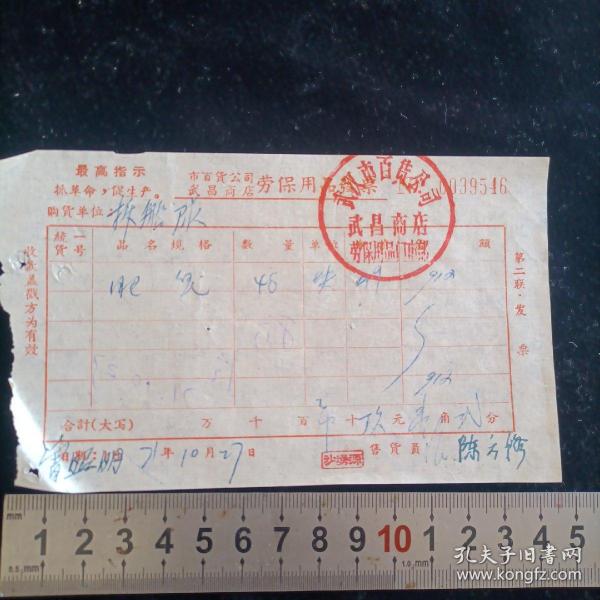 最高指示
抓革命，促生产。
市百货公司
武昌商店 劳保用品 票 0039546
武汉市百货公司
武昌商店
劳保用品门市部
购货单位
统一货号 品名规格 数量 单 额
肥皂 46 块
9 12
9 12
合计(大写) 万 千 百 十 玖 元 壹 角 贰 分
日期: 71 年 10 月 27 日
售货员 陈
收款盖戳方为有效
第二联·发票
mm 1 2 3 4 5 6 7 8 9 10 1 2 3 4 5
0.5mm 1.0mm
孔夫子旧书网
www.kongfz.com